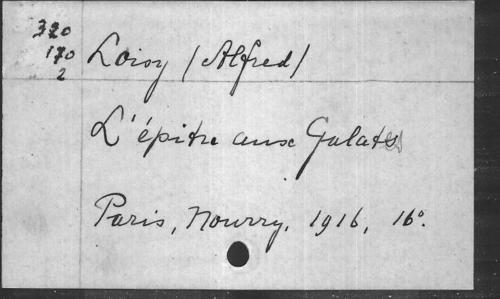 320
170
2
Loisy (Alfred)
L'épitre aux Galates
Paris, Nourry, 1916, 16°.